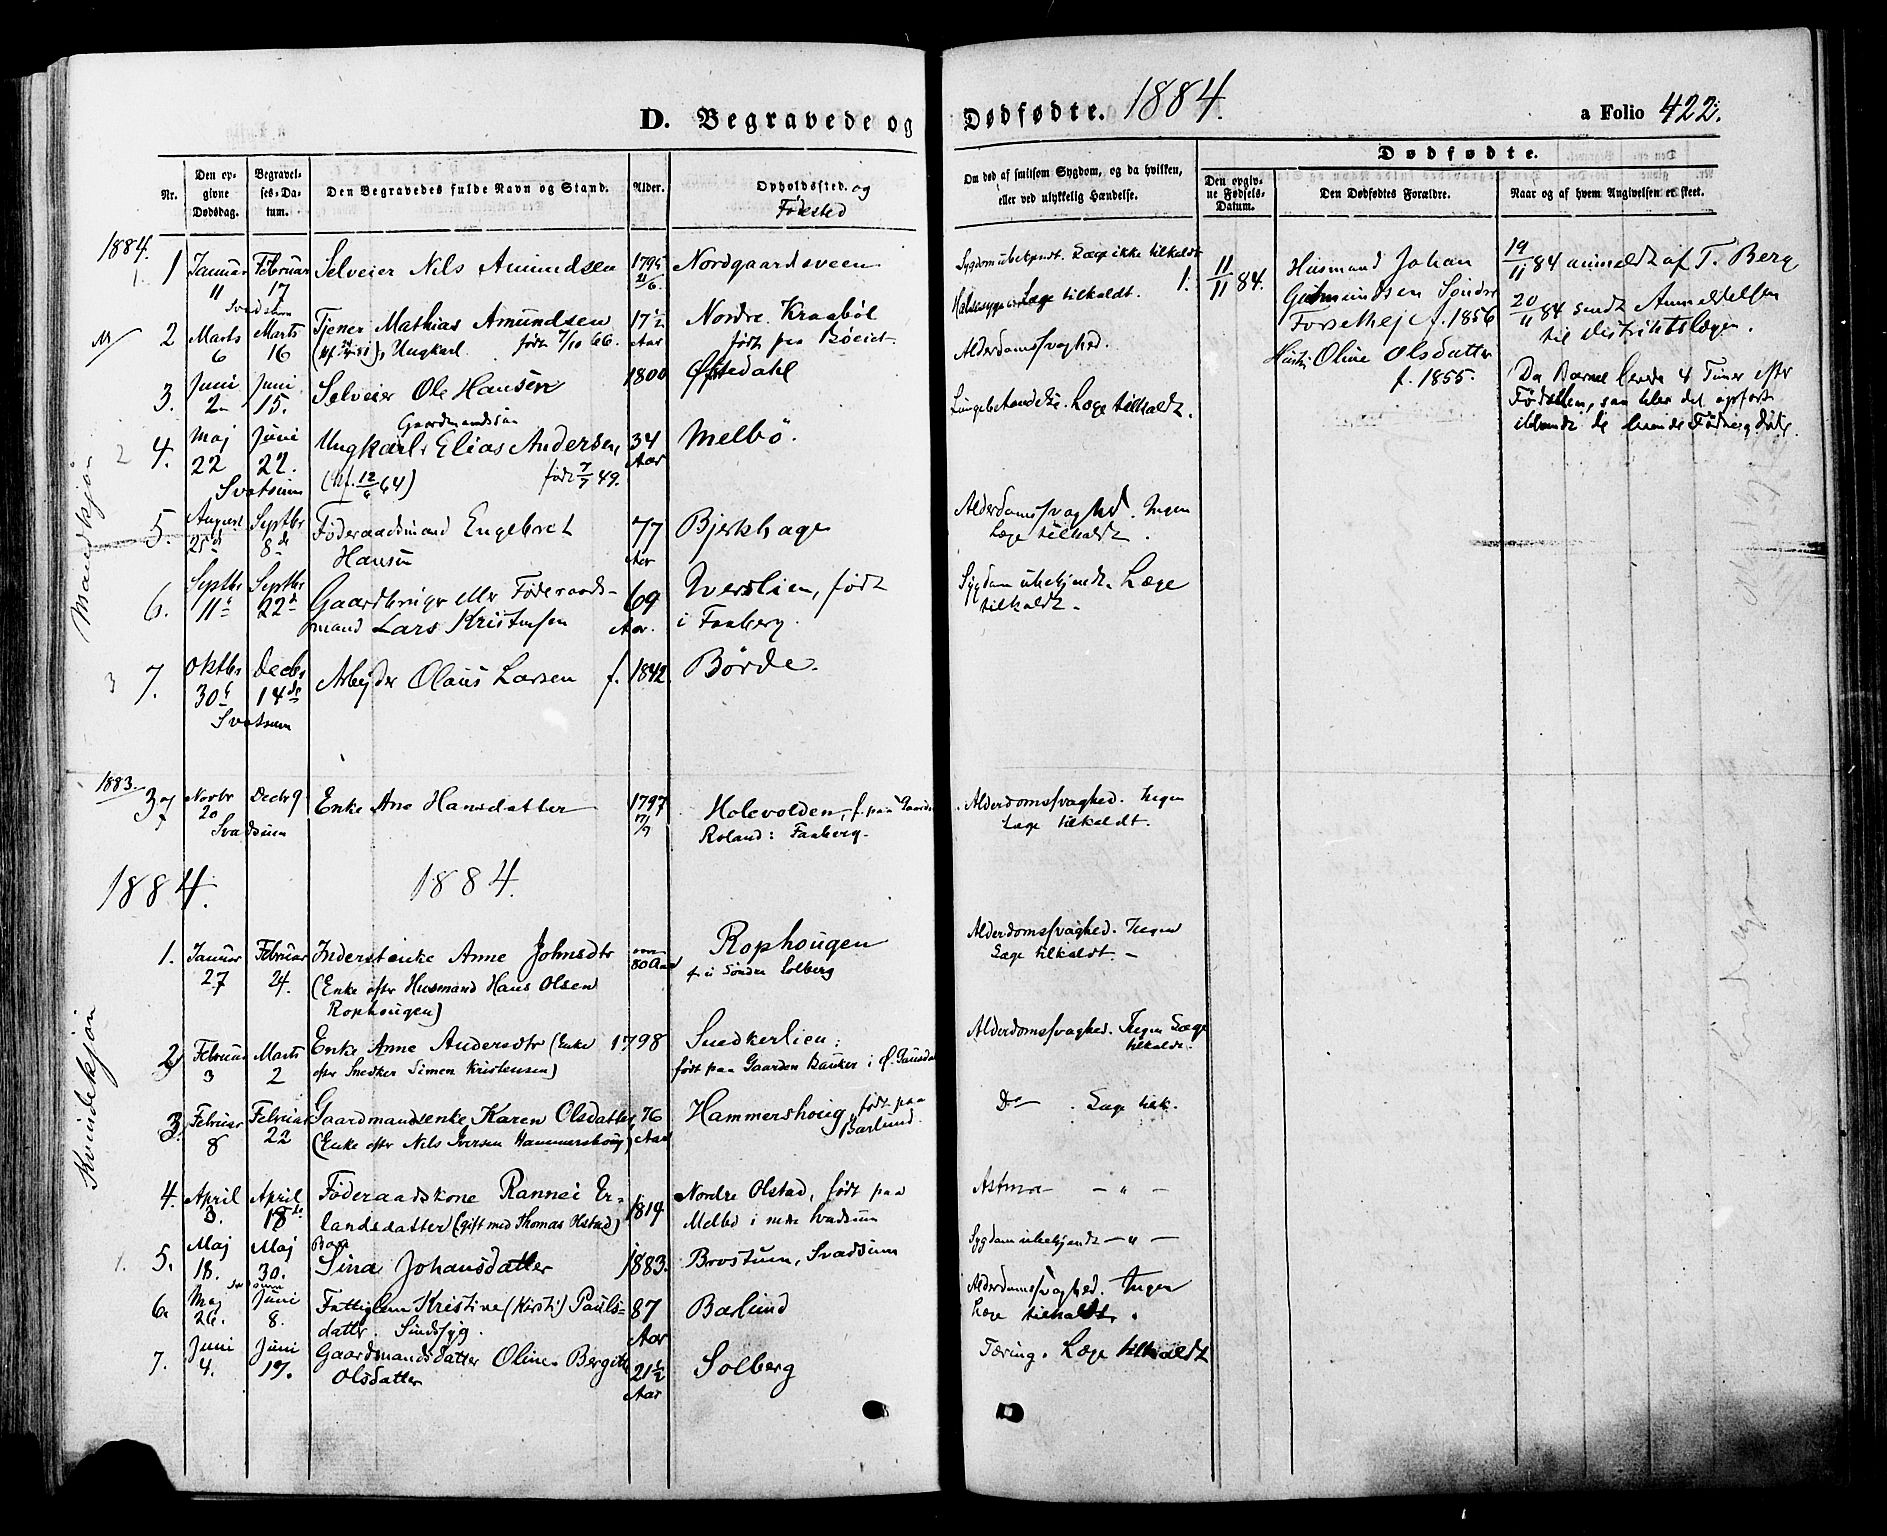 D. Begravede og Dødfødte. 1884.
a Folio 422.
Nr.
Den opgivne Dødsdag.
Begravelses-Datum.
Den Begravedes fulde Navn og Stand.
Alder.
Opholdssted. og Fødested
Om død af smitsom Sygdom, og da hvilken, eller ved ulykkelig Hændelse.
Dødfødte.
Den opgivne Fødsels-Datum.
Den Dødfødtes Forældre.
Naar og af hvem Angivelsen er skeet.
Mandkjøn
1884.
1 Januar 11 Februar 17 Selveier Nils Amundsen 1795 21/6. Nordgaardsveen
Svadsum
Sygdom ubekjendt. Læge ikke tilkaldt
2 Marts 6 Marts 16 Tjener Mathias Amundsen 17 1/2 Aar Nordre Kraabøl
Ungkarl. født 7/10 66. født paa Bøeiet
Læge tilkaldt.
3. Juni 2 Juni 15. Selveier Ole Hansen 1800 Øfstedahl
Alderdomssvaghed.
Gaardmandssøn
4. Maj 22 Juni 22. Ungkarl Elias Andersen, 34 Aar Melbö.
Svatsum (kf. 12/6 64) født 7/7 49.
Lungebetændelse. Læge tilkaldt.
5. August 25de Septbr 8de Föderaadsmand Engebret 77 Aar Bjerkhage
Hansen
Alderdomssvaghed. Ingen
Læge tilkaldt.
6. Septbr 11te Septbr 22de Gaardbruger eller Föderaads- 69 Aar. Iverslien, født
mand Lars Kristensen i Faaberg.
Sygdom ubekjendt. Læge
tilkaldt
7. Oktbr 30te Decbr 14de Arbejder Olaus Larsen f. 1842. Börde.
Svatsum
1. 11/11 84. Husmand Johan
Gudmundsen Söndre
Forsetheje f. 1856
Hustru Oline Olsdatter
f. 1855.
19/11 84 anmeldt af T. Berg
20/11 84 sendt Anmeldelsen
til Distriktslægen.
Da Barnet levede 4 Timer efter
Födselen, saa blev det opført
iblandt de levende Födte og Døde.
1883.
37 Novbr 20 Decbr 9 Enke Ane Hansdatter 1797 17/7 Holevolden, f. paa Gaarden
Svadsum Roland i Faaberg.
Alderdomssvaghed. Ingen
Læge tilkaldt.
1884. 1884.
Kvindekjøn
1. Januar 27 Februar 24. Inderstenke Anne Johnsdtr over 80 Aar Rophougen
(Enke efter Husmand Hans Olsen f. i Søndre Solberg
Rophougen)
Alderdomssvaghed. Ingen
Læge tilkaldt.
2 Februar 3 Marts 2 Enke Anne Andersdtr (Enke 1798 Snedkerlien,
efter Snedker Simen Kristensen) født paa Gaarden Bauker i Ø. Gausdal
Alderdomssvaghed. Ingen Læge
tilkaldt.
3. Februar 8 Februar 22 Gaardmandsenke Karen Olsdatter, 76 Aar Hammershoug, født paa
(Enke efter Nils Iversen Hammershoug) Bælund.
Do. Læge tilk.
4. April 3. April 18de Föderaadskone Rannei Er- 1814 Nordre Olstad, født paa
landsdatter (gift med Thomas Olstad) Melbö i nedre Svadsum
Astma — „ —
5. Maj 18. Maj 30. Barn
Sina Johansdatter 1883. Brostuen, Svadsum
Svadsum
Sygdom ubekjendt — „ —
6. Maj 26. Juni 8. Fattiglem Kristine (Kirsti) Pauls- 87 Aar Bælund
datter. Sindssyg.
Alderdomssvaghed. Ingen
Læge tilkaldt.
7. Juni 4. Juni 17. Gaardmandsdatter Oline Bergitte 21 1/2 Aar Solberg
Olsdatter
Tæring. Læge tilkaldt